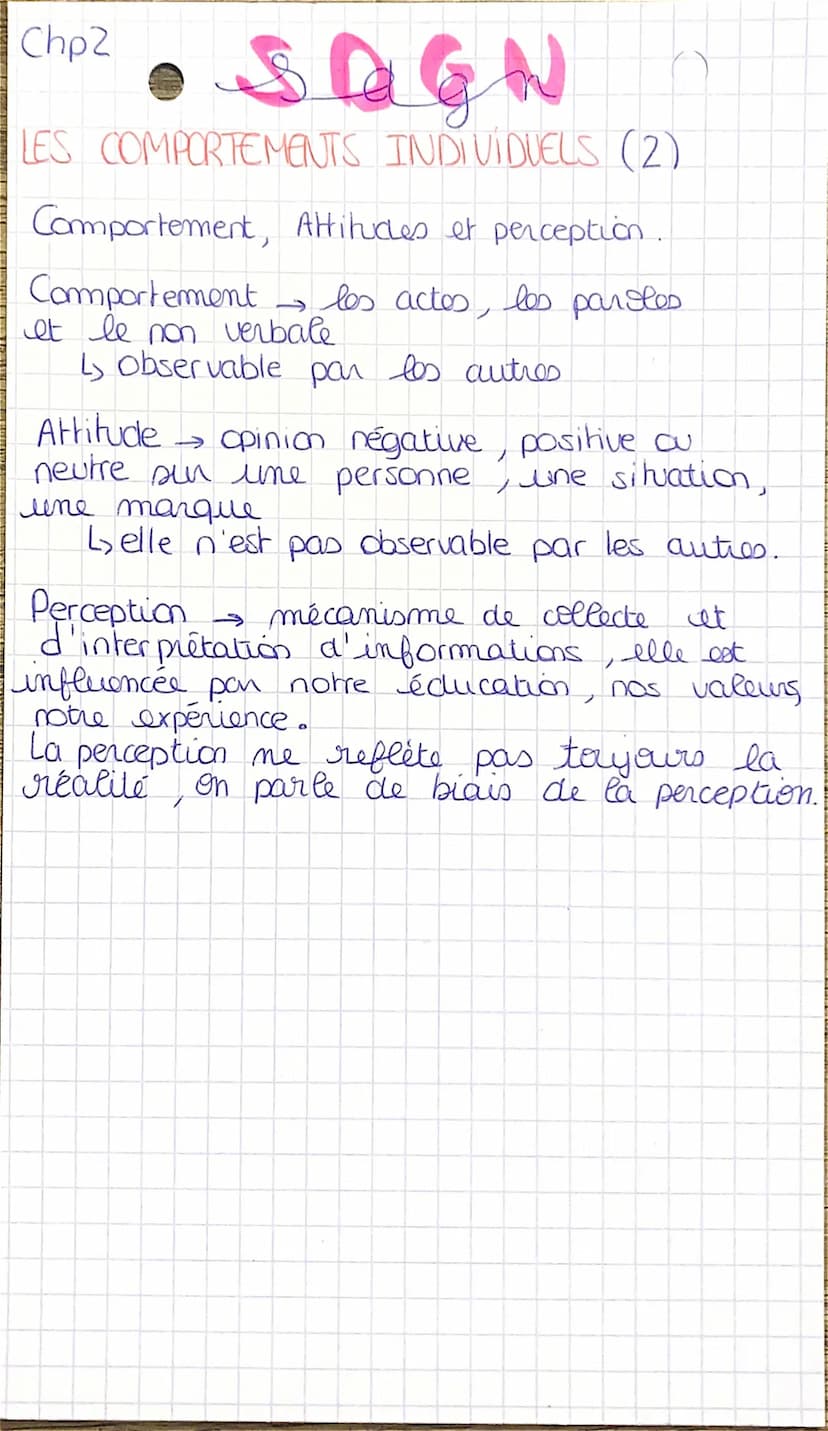 Chp2
SDGN
Sdgn
LES COMPORTEMENTS INDIVIDUELS (2)
Comportement, Attitudes et perception.
Comportement → les actes, les paroles
et le non verbale
↳ Observable par les autres
Attitude → opinion négative, positive ou
neutre sur une personne, une situation,
une marque
↳ elle n'est pas observable par les autres.
Perception → mécanisme de collecte et
d'interprétation d'informations, elle est
influencée par notre éducation, nos valeurs,
notre expérience.
La perception ne reflète pas toujours la
réalité, on parle de biais de la perception.